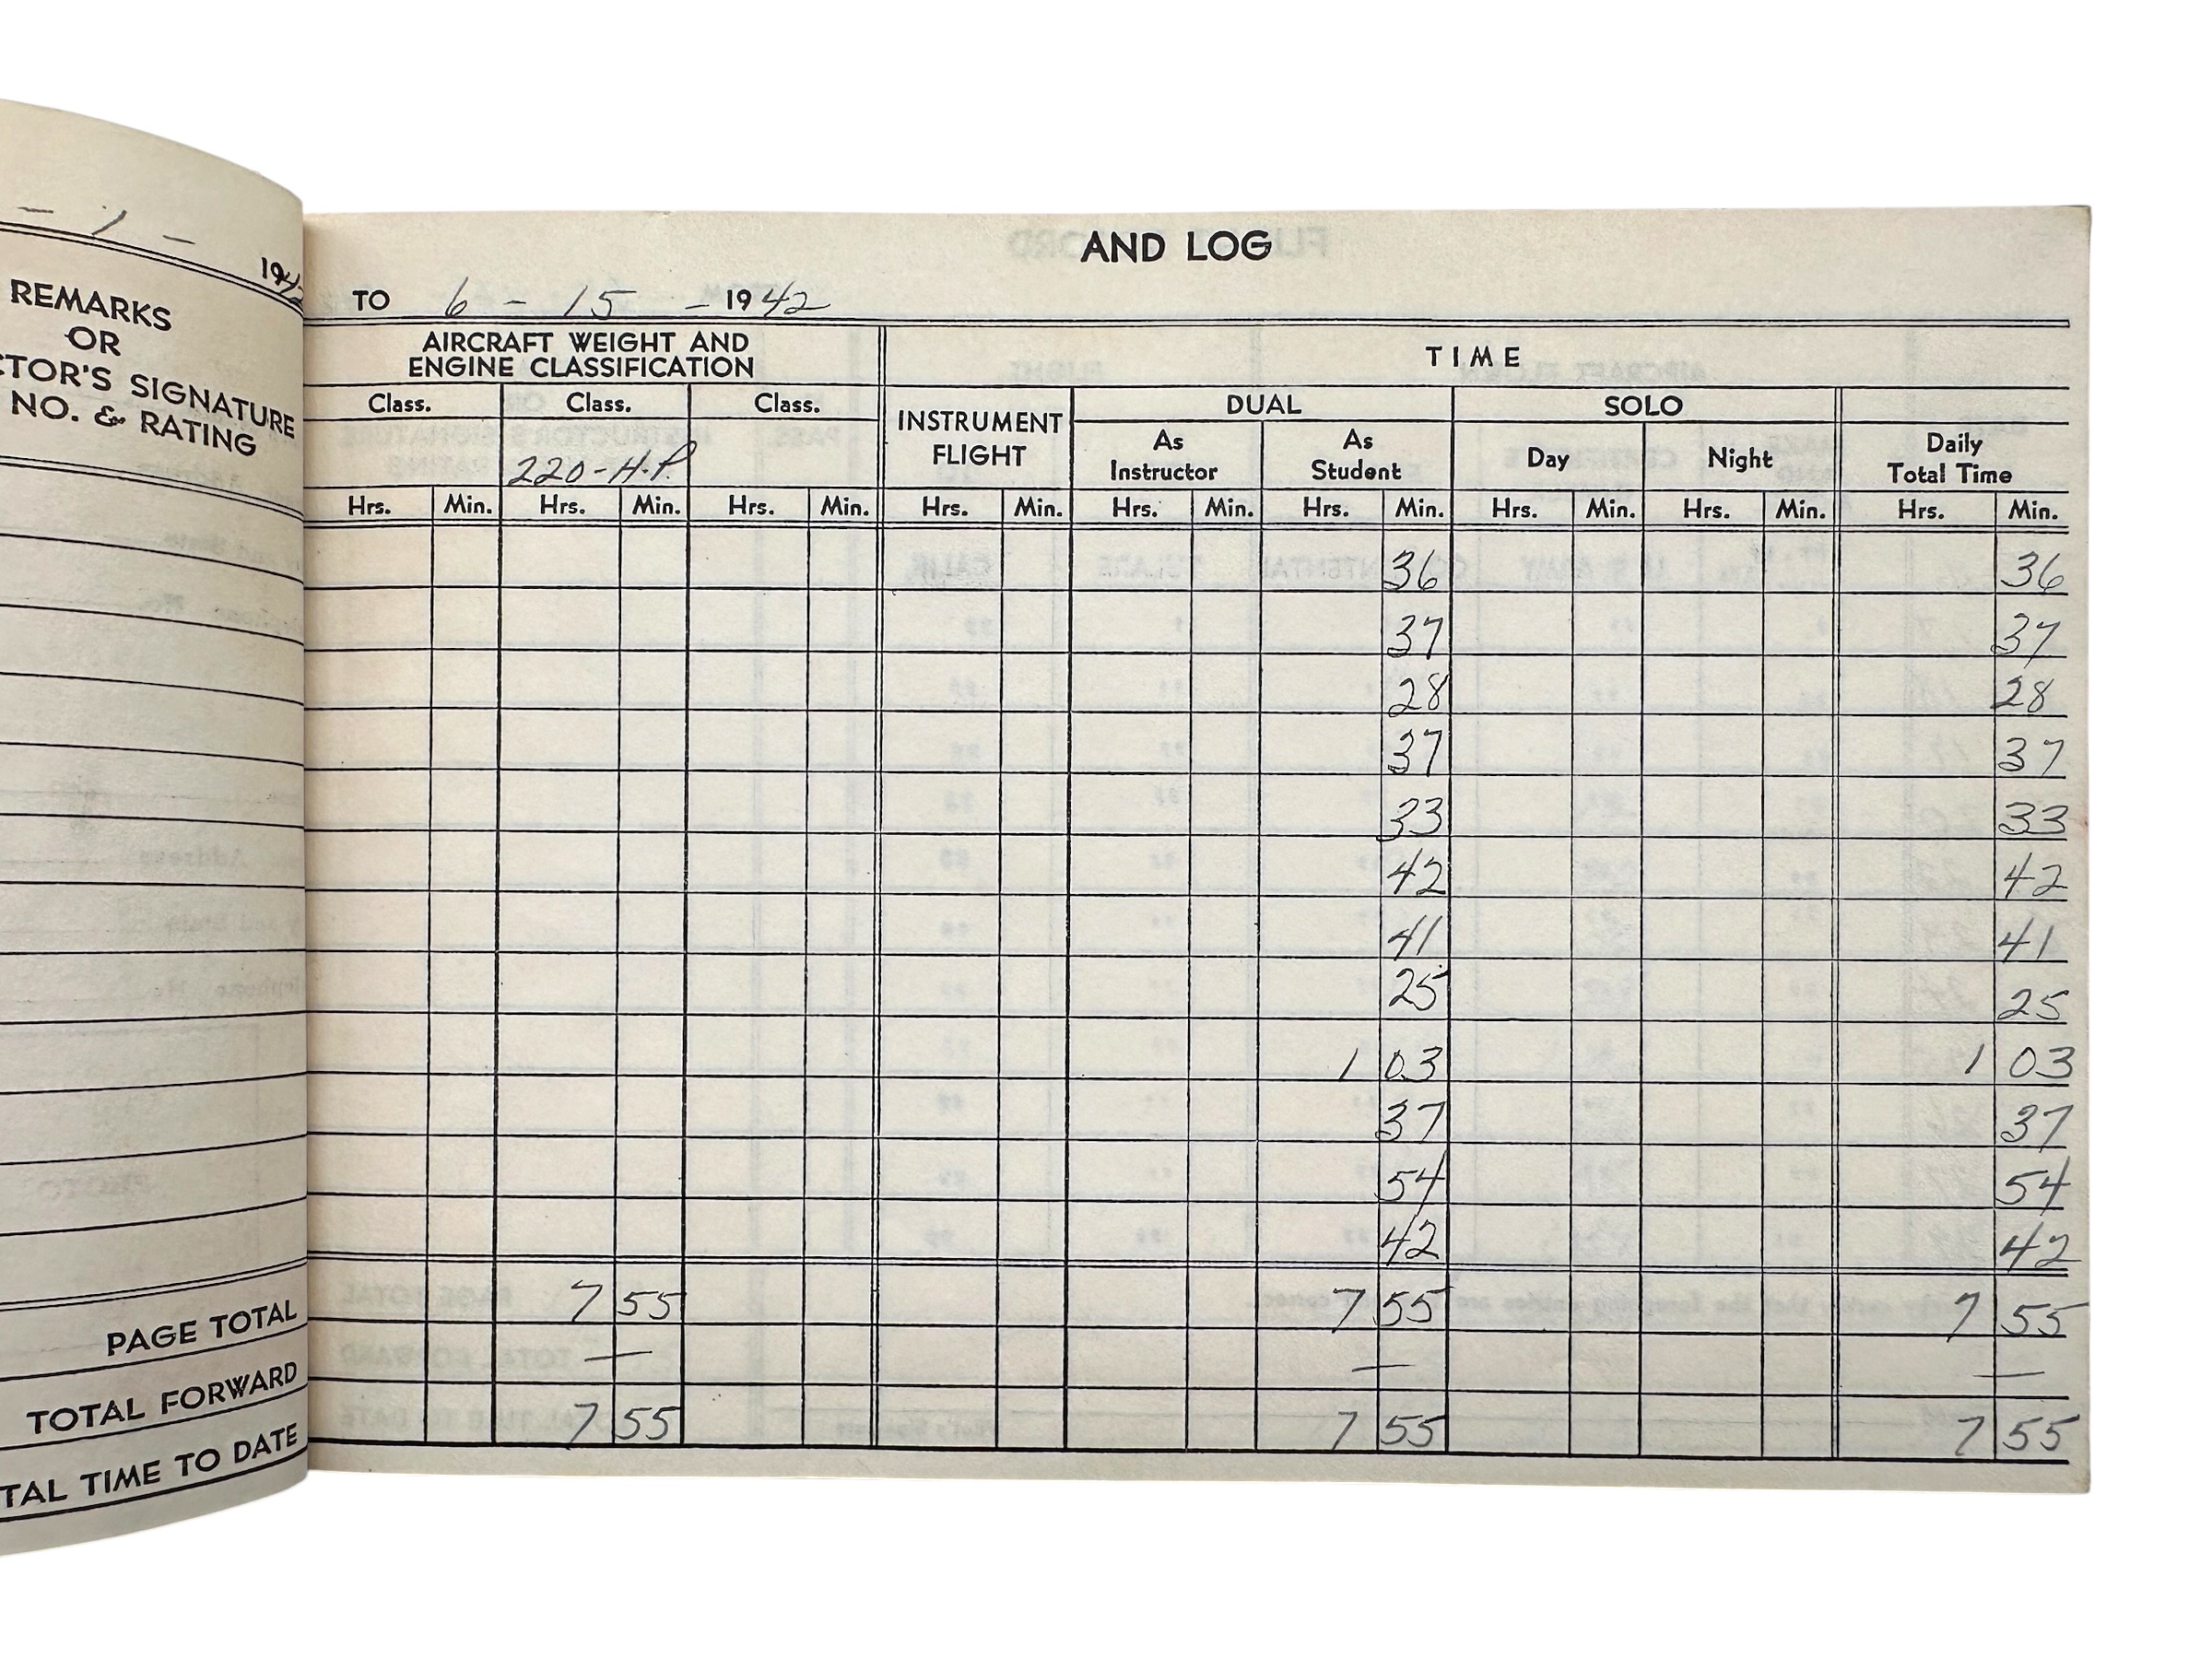 - 1 - 1942
REMARKS
OR
CTOR'S SIGNATURE
NO. & RATING
PAGE TOTAL
TOTAL FORWARD
TAL TIME TO DATE
AND LOG
TO 6 - 15 - 1942
AIRCRAFT WEIGHT AND
ENGINE CLASSIFICATION
TIME
Class. Class. Class.
INSTRUMENT
FLIGHT
DUAL SOLO
As
Instructor
As
Student
Day Night
Daily
Total Time
220-H.P.
Hrs. Min. Hrs. Min. Hrs. Min. Hrs. Min. Hrs. Min. Hrs. Min. Hrs. Min. Hrs. Min. Hrs. Min.
36 36
37 37
28 28
37 37
33 33
42 42
41 41
25 25
1 03 1 03
37 37
54 54
42 42
7 55 7 55 7 55
— — —
7 55 7 55 7 55